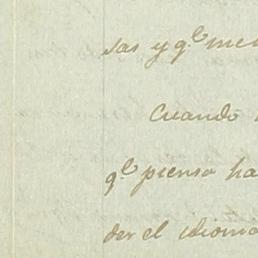 sas y q.e me
Cuando
q.e pienso ha
der el idioma